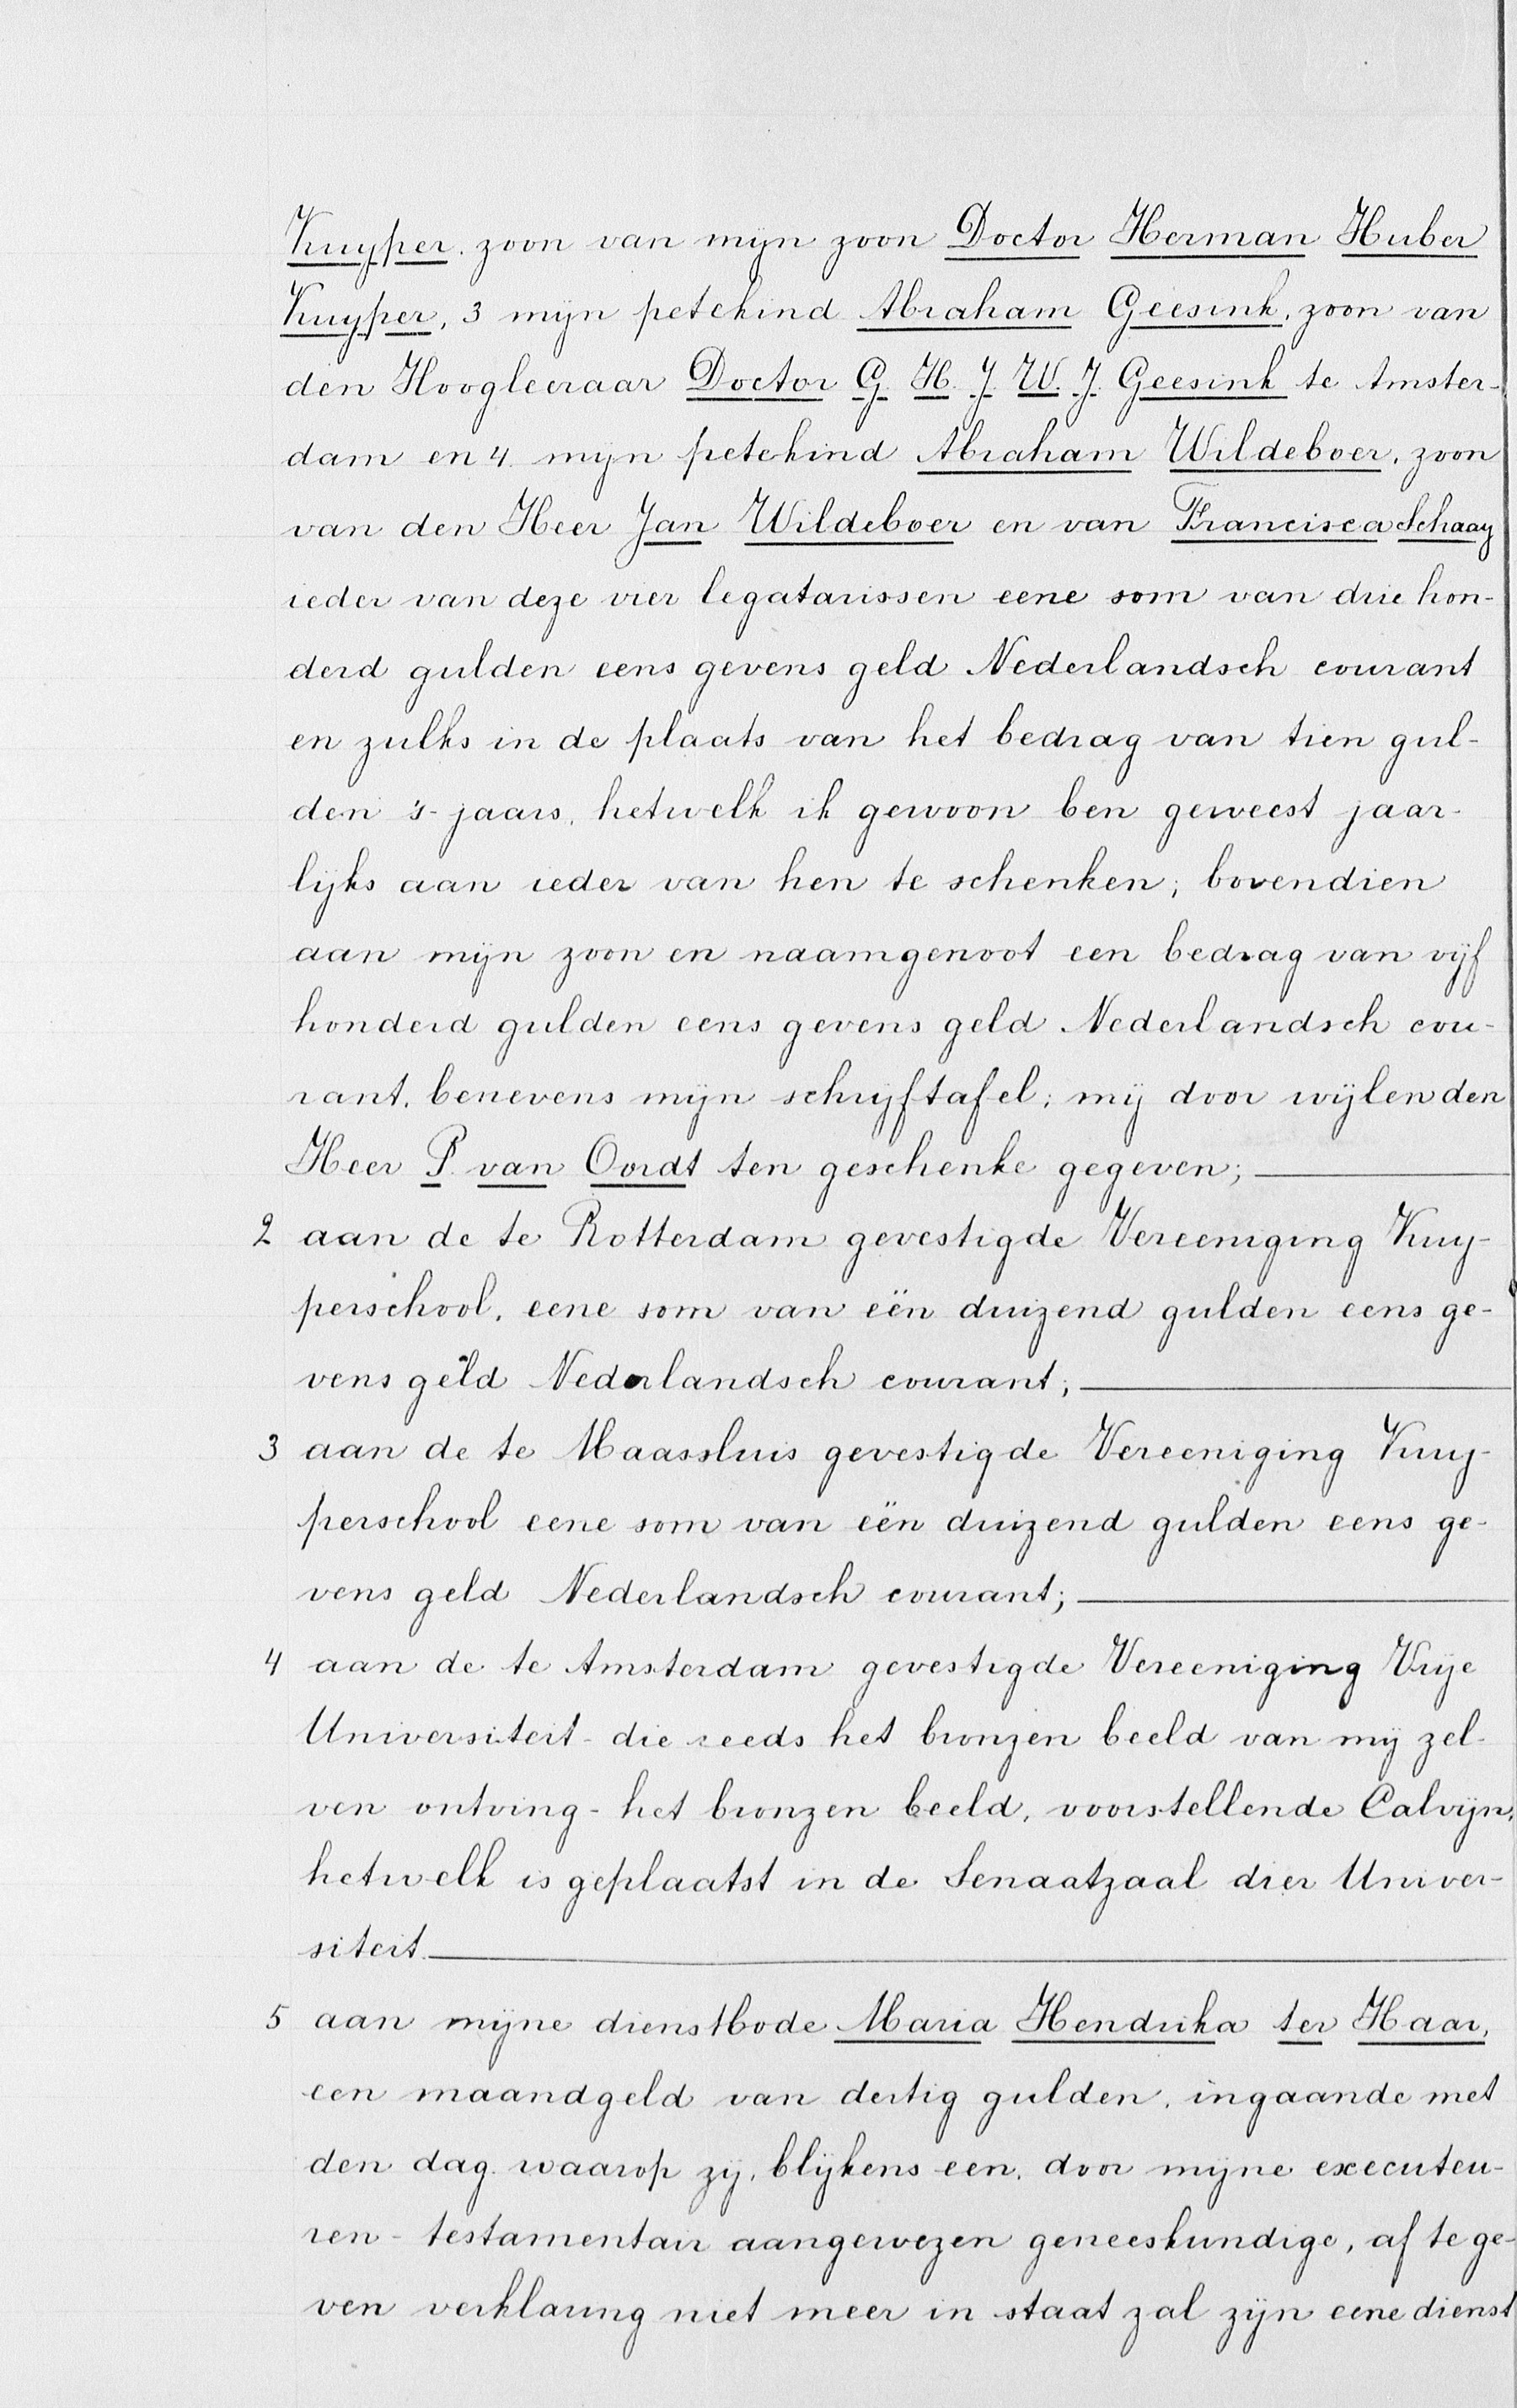 Kuyper. zoon van mijn zoon Doctor Herman Huber
Kuyper, 3 mijn petekind Abraham Geesink, zoon van
den Hoogleeraar Doctor G. H. J. W. J. Geesink te Amster-
dam en 4. mijn petekind Abraham Wildeboer, zoon
van den Heer Jan Wildeboer en van Francisca Schaay
ieder van deze vier legatarissen eene som van drie hon-
derd gulden eens gevens geld Nederlandsch courant
en zulks in de plaats van het bedrag van tien gul-
den 's-jaars, hetwelk ik gewoon ben geweest jaar-
lijks aan ieder van hen te schenken; bovendien
aan mijn zoon en naamgenoot een bedrag van vijf
honderd gulden eens gevens geld Nederlandsch cou-
rant, benevens mijn schrijftafel; mij door wijlen den
Heer P. van Oordt ten geschenke gegeven;
2 aan de te Rotterdam gevestigde Vereeniging Kuy-
perschool, eene som van eën duizend gulden eens ge-
vens geld Nederlandsch courant;
3 aan de te Maassluis gevestigde Vereeniging Kuy-
perschool eene som van eën duizend gulden eens ge-
vens geld Nederlandsch courant;
4 aan de te Amsterdam gevestigde Vereeniging Vrije
Universiteit - die reeds het bronzen beeld van mij zel-
ven ontving - het bronzen beeld, voorstellende Calvijn,
hetwelk is geplaatst in de Senaatzaal dier Univer-
siteit.
5 aan mijne dienstbode Maria Hendrika ter Haar,
een maandgeld van dertig gulden, ingaande met
den dag waarop zij, blijkens een, door mijne executeu-
ren - testamentair aangewezen geneeskundige, af te ge-
ven verklaring niet meer in staat zal zijn eene dienst